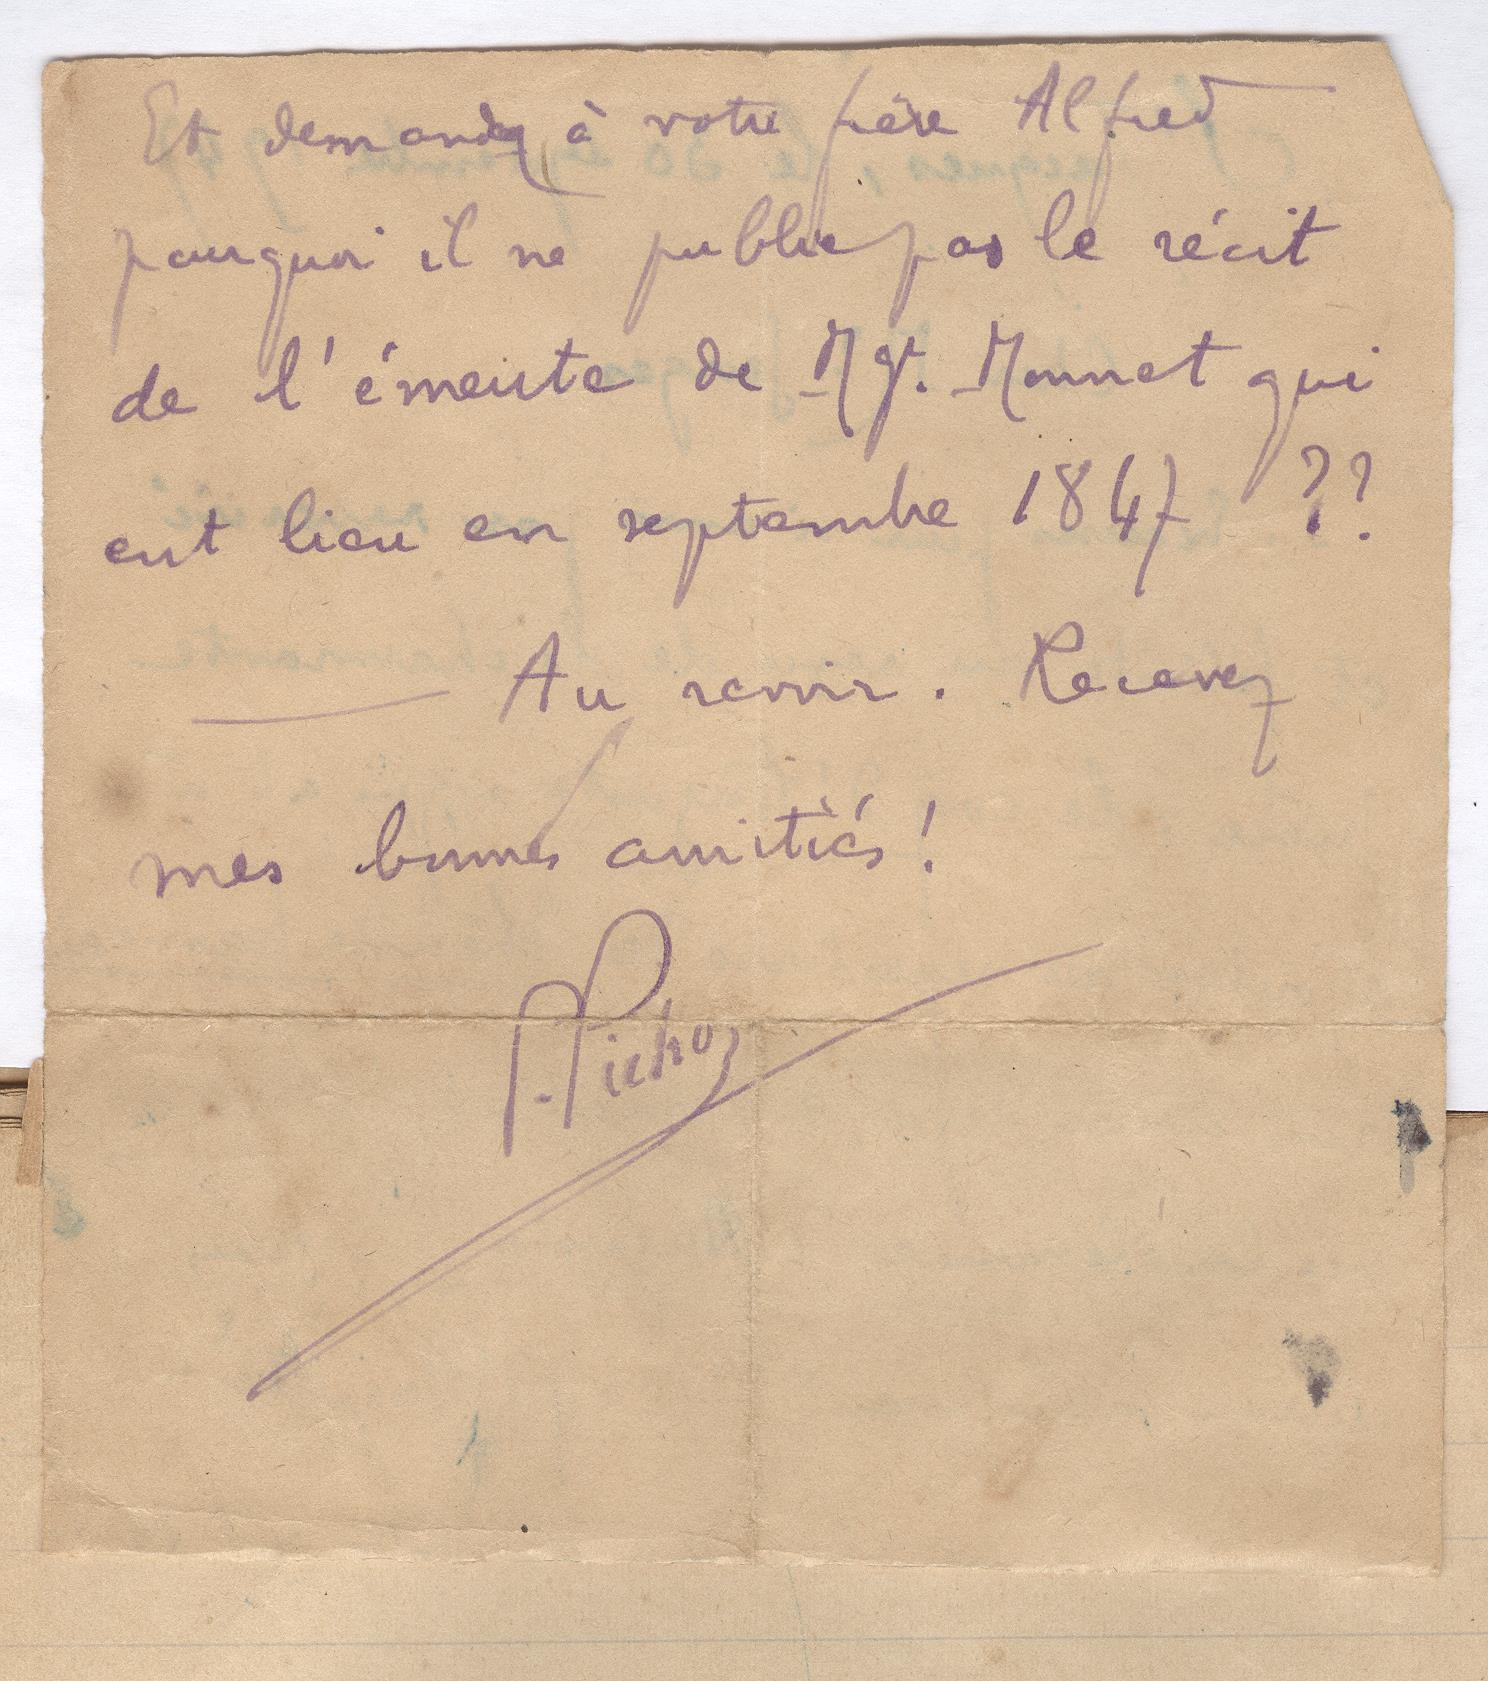 Et demandez à votre frère Alfred
pourquoi il ne publie pas le récit
de l'émeute de Mgr. Monnet qui
eut lieu en septembre 1847 ??
Au revoir. Recevez
mes bonnes amitiés !